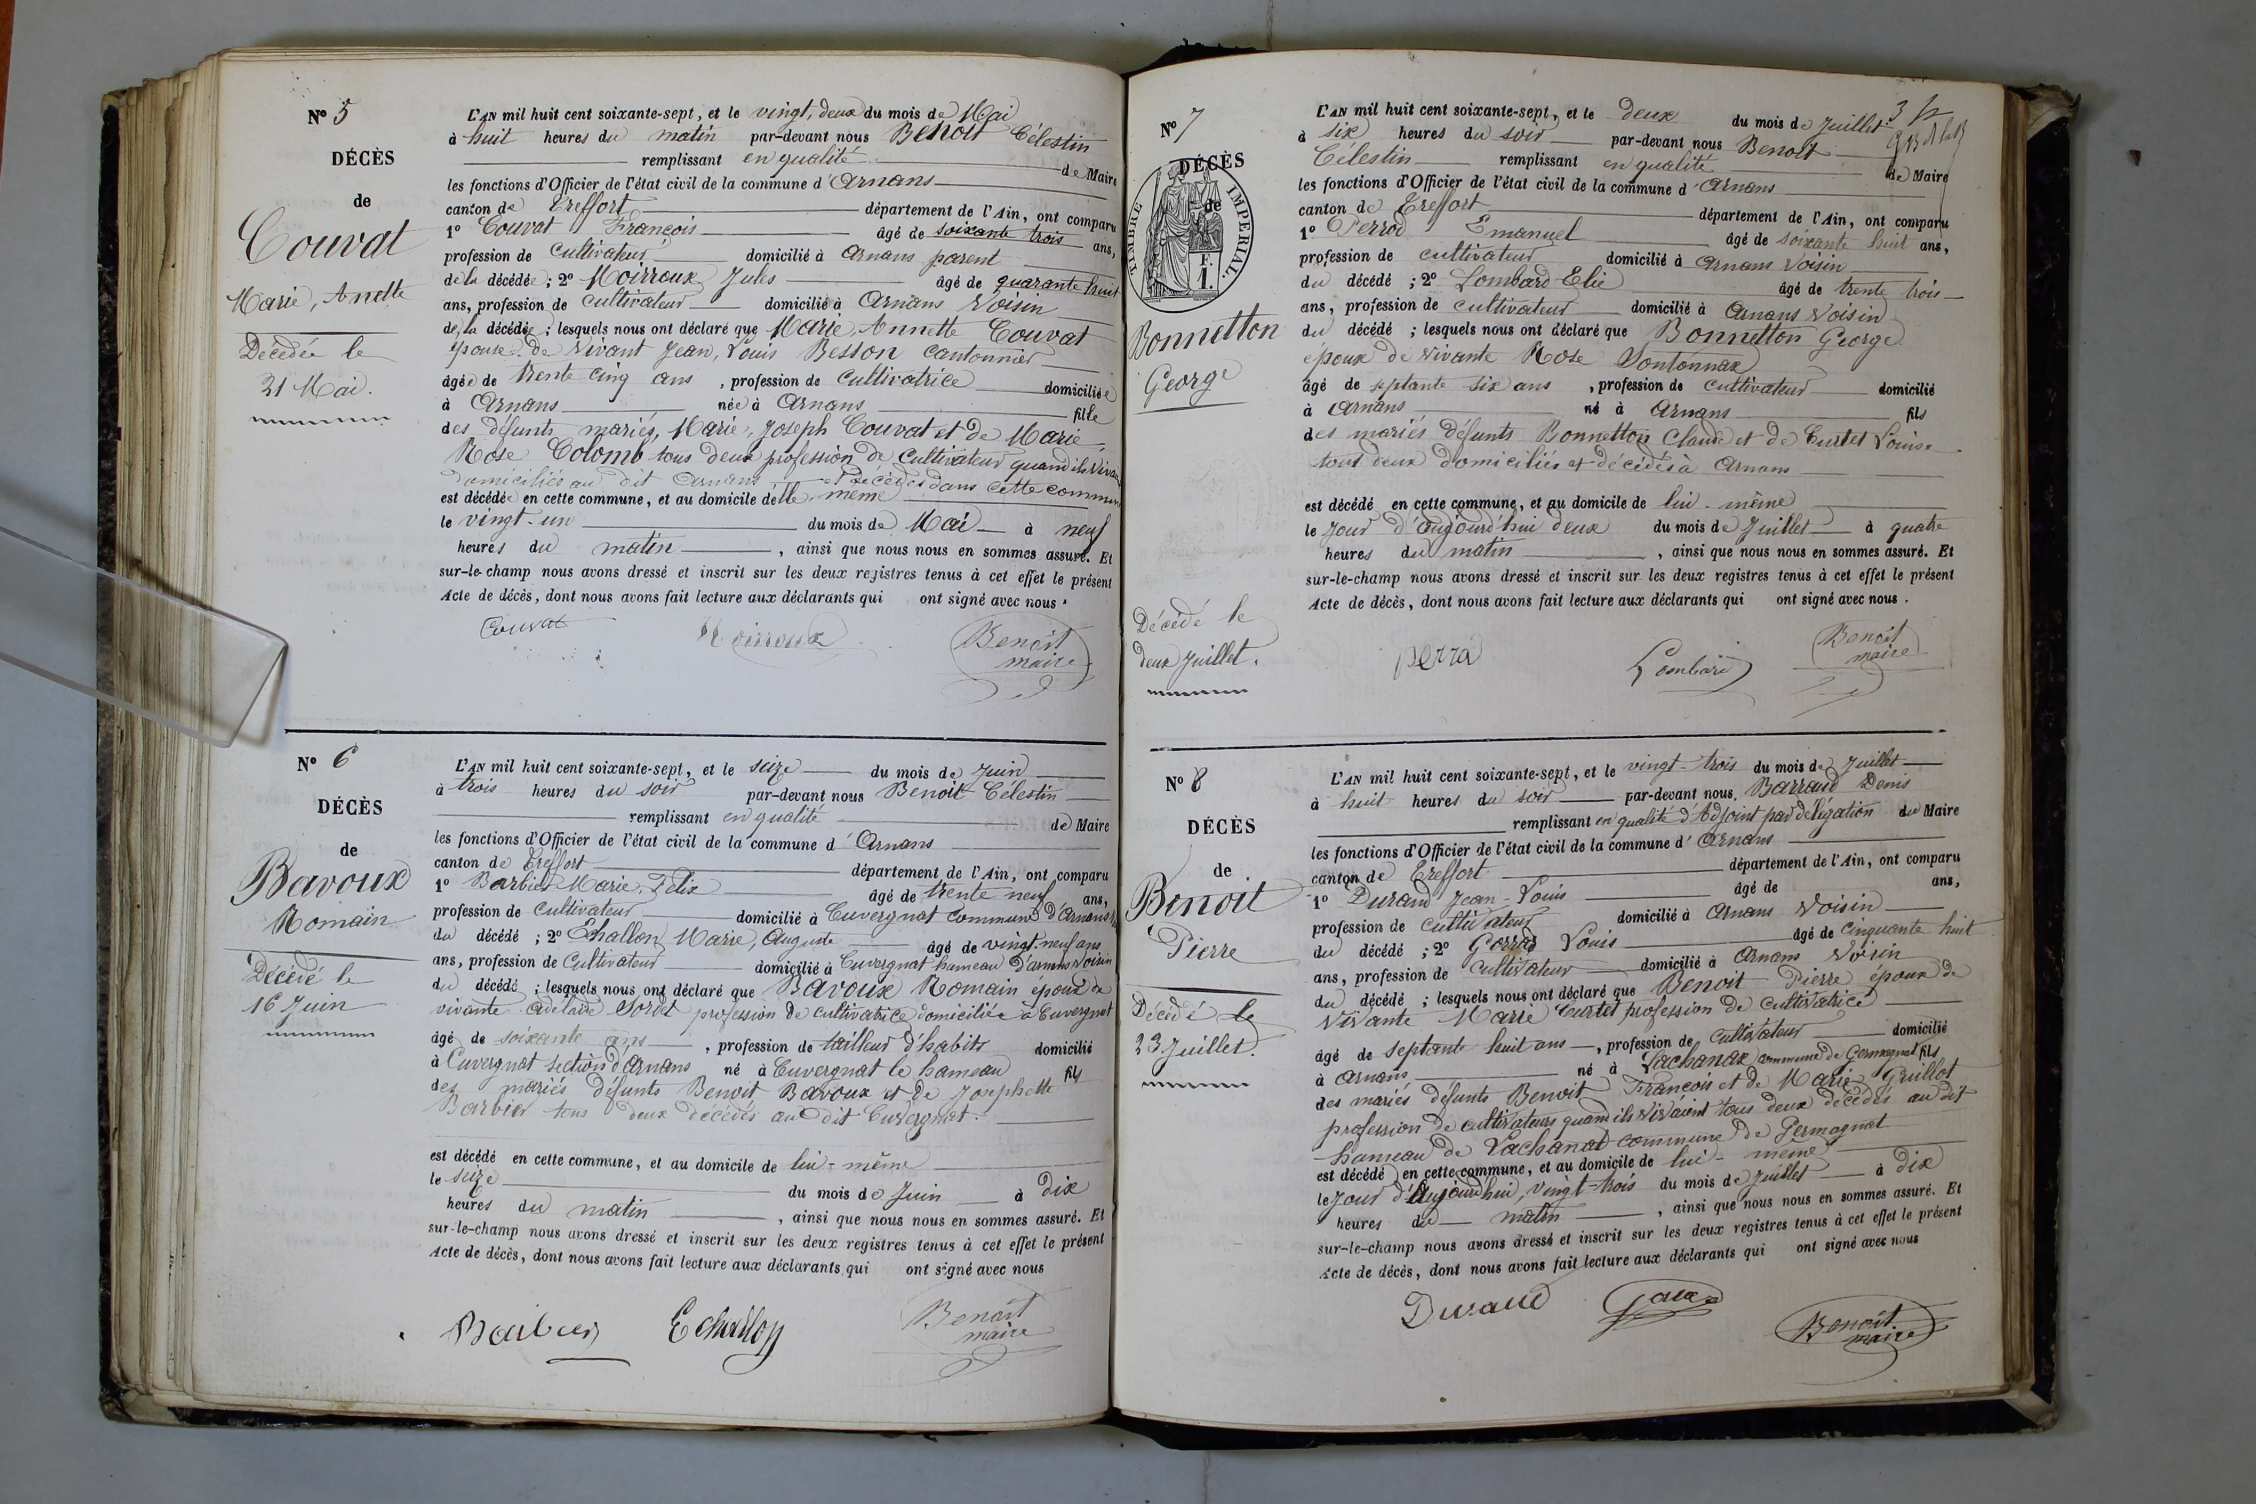 N° 5
DÉCÈS
de
Couvat
Marie, Anette
Décédée le
21 Mai.
L'AN mil huit cent soixante-sept, et le vingt, deux du mois de Mai
à huit heures du matin par-devant nous Benoit Célestin
remplissant en qualité de Maire
les fonctions d'Officier de l'état civil de la commune d'Arnans
canton de Treffort département de l'Ain, ont comparu
1° Couvat François âgé de soixante trois ans,
profession de Cultivateur domicilié à Arnans parent
de la décédée ; 2° Moirroux Jules âgé de quarante huit
ans, profession de Cultivateur domicilié à Arnans Voisin
de la décédée ; lesquels nous ont déclaré que Marie, Annette Couvat
épouse de Vivant Jean, Louis Besson Cantonnier
âgée de Trente Cinq ans , profession de Cultivatrice domiciliée
à Arnans née à Arnans fille
des défunts mariés, Marie, Joseph Couvat et de Marie
Rose Colomb tous deux profession de Cultivateur quand ils vivai
domiciliés au dit Arnans et Décédés dans cette commune
est décédée en cette commune, et au domicile d'elle même
le vingt-un du mois de Mai à neuf
heures du matin , ainsi que nous nous en sommes assuré. Et
sur-le-champ nous avons dressé et inscrit sur les deux registres tenus à cet effet le présent
Acte de décès, dont nous avons fait lecture aux déclarants qui ont signé avec nous.
Couvat Moirroux Benoit
maire
N° 6
DÉCÈS
de
Bavoux
Romain
Décédé le
16 Juin
L'AN mil huit cent soixante-sept, et le seize du mois de Juin
à trois heures du soir par-devant nous Benoit Célestin
remplissant en qualité de Maire
les fonctions d'Officier de l'état civil de la commune d'Arnans
canton de Treffort département de l'Ain, ont comparu
1° Barbier Marie, Félix âgé de trente neuf ans,
profession de Cultivateur domicilié à Cuvergnat commune d'Arnans
du décédé ; 2° Echallon Marie, Auguste âgé de vingt-neuf ans
ans, profession de Cultivateur domicilié à Cuvergnat hameau d'arnans Voisin
du décédé ; lesquels nous ont déclaré que Bavoux Romain époux de
vivante adélaïde Sordet profession de cultivatrice domiciliée à Cuvergnat
âgé de soixante ans , profession de tailleur d'habits domicilié
à Cuvergnat section d'Arnans né à Cuvergnat le hameau fils
des mariés défunts Benoit Bavoux et de Josephette
Barbier tous deux décédés au dit Cuvergnat.
est décédé en cette commune, et au domicile de lui-même
le seize du mois de Juin à dix
heures du matin , ainsi que nous nous en sommes assuré. Et
sur-le-champ nous avons dressé et inscrit sur les deux registres tenus à cet effet le présent
Acte de décès, dont nous avons fait lecture aux déclarants qui ont signé avec nous
Barbier Echallon Benoit
maire
N° 7
DÉCÈS
de
TIMBRE IMPÉRIAL.
F.
1.
Bonnetton
George
Décédé le
deux Juillet.
L'AN mil huit cent soixante-sept, et le deux du mois de Juillet
à six heures du soir par-devant nous Benoit
Célestin remplissant en qualité de Maire
les fonctions d'Officier de l'état civil de la commune d'Arnans
canton de Treffort département de l'Ain, ont comparu
1° Perrod Emanuel âgé de soixante huit ans,
profession de cultivateur domicilié à Arnans Voisin
du décédé ; 2° Lombard Elie âgé de trente trois
ans, profession de cultivateur domicilié à Arnans Voisin
du décédé ; lesquels nous ont déclaré que Bonnetton George
époux de vivante Rose Sontonnax
âgé de septante six ans , profession de cultivateur domicilié
à Arnans né à Arnans fils
des mariés défunts Bonnetton Claude et de Curtet Louise
tout deux domiciliés et décédés à Arnans
est décédé en cette commune, et au domicile de lui-même
le Jour d'aujourd'hui deux du mois de Juillet à quatre
heures du matin , ainsi que nous nous en sommes assuré. Et
sur-le-champ nous avons dressé et inscrit sur les deux registres tenus à cet effet le présent
Acte de décès, dont nous avons fait lecture aux déclarants qui ont signé avec nous.
perra Lombard Benoit
maire
N° 8
DÉCÈS
de
Benoit
Pierre
Décédé le
23 Juillet.
L'AN mil huit cent soixante-sept, et le vingt-trois du mois de Juillet
à huit heures du soir par-devant nous Barraud Denis
remplissant en qualité d'Adjoint par délégation du Maire
les fonctions d'Officier de l'état civil de la commune d'Arnans
canton de Treffort département de l'Ain, ont comparu
1° Durand Jean-Louis âgé de ans,
profession de cultivateur domicilié à Arnans Voisin
du décédé ; 2° Louis âgé de cinquante huit
ans, profession de cultivateur domicilié à Arnans Voisin
du décédé ; lesquels nous ont déclaré que Benoit Pierre époux de
Vivante Marie Curtet profession de cultivatrice
âgé de septante huit ans , profession de cultivateur domicilié
à Arnans né à Lachanax commune de Germagnat fils
des mariés défunts Benoit François et de Marie Grillot
profession de cultivateurs quand ils vivaient tous deux décédés au dit
hameau de Lachanat commune de Germagnat
est décédé en cette commune, et au domicile de lui-même
le Jour d'Aujourd'hui, vingt-trois du mois de Juillet à dix
heures du matin , ainsi que nous nous en sommes assuré. Et
sur-le-champ nous avons dressé et inscrit sur les deux registres tenus à cet effet le présent
Acte de décès, dont nous avons fait lecture aux déclarants qui ont signé avec nous
Durand Benoit
maire